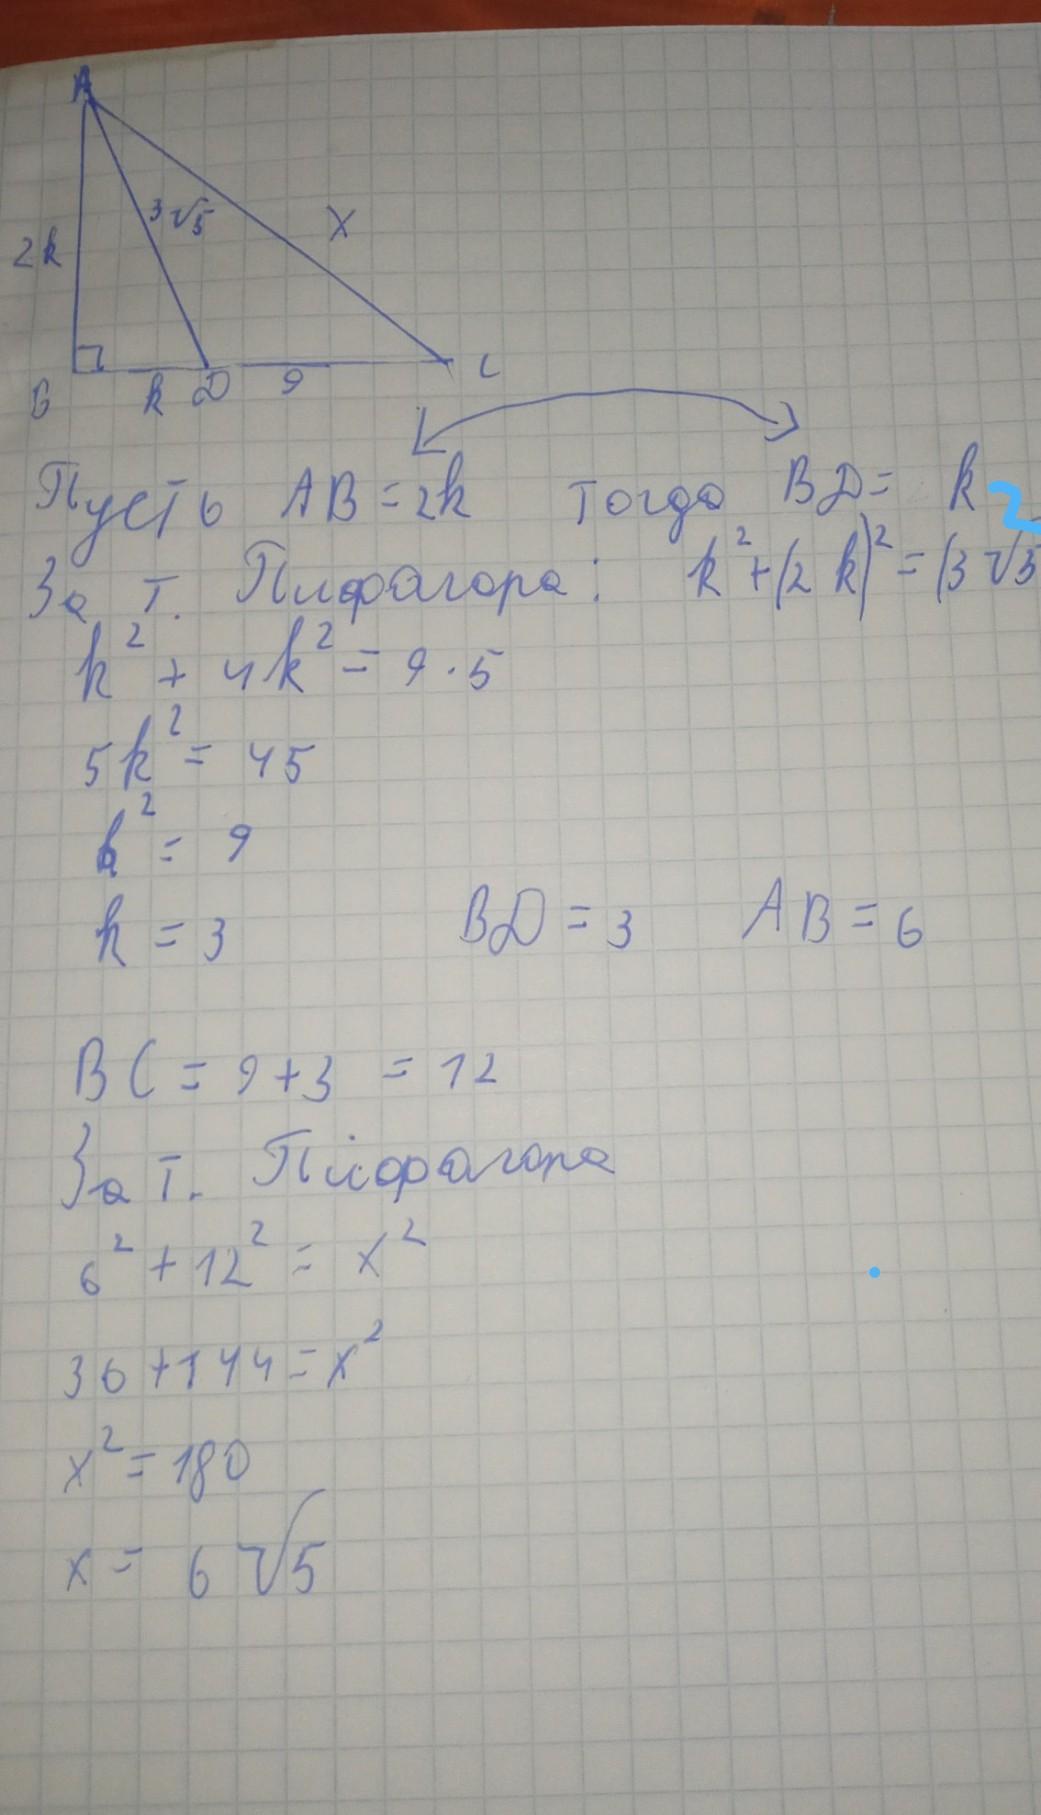 A
3√5
X
2k
B k D 9 C
Пусть AB = 2k тогда BD = k
За т. Пифагора: k² + (2k)² = (3√5
2
k² + 4k² = 9·5
5k² = 45
k² = 9
k = 3 BD = 3 AB = 6
BC = 9+3 = 12
За т. Піфагора
6² + 12² = x²
36 + 144 = x²
x² = 180
x = 6√5